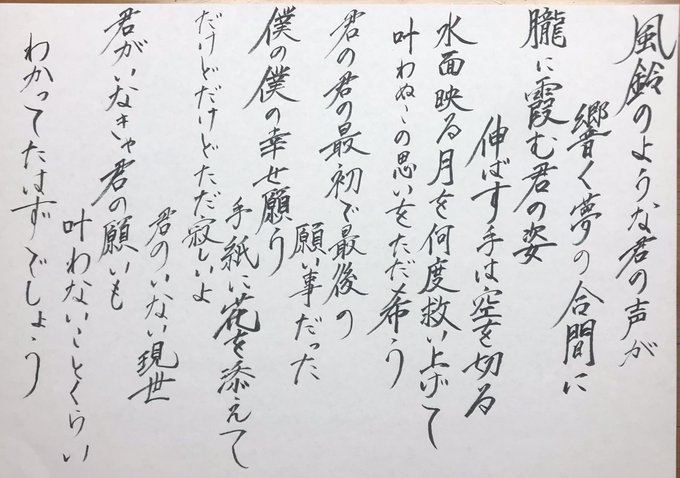 風鈴のような君の声が
響く夢の合間に
朧に霞む君の姿
伸ばす手は空を切る
水面映る月を何度救い上げて
叶わぬこの思いをただ希う
君の君の最初で最後の
願い事だった
僕の僕の幸せ願う
手紙に花を添えて
だけどだけどただ寂しいよ
君のいない現世
君がいなきゃ君の願いも
叶わないことくらい
わかってたはずでしょう